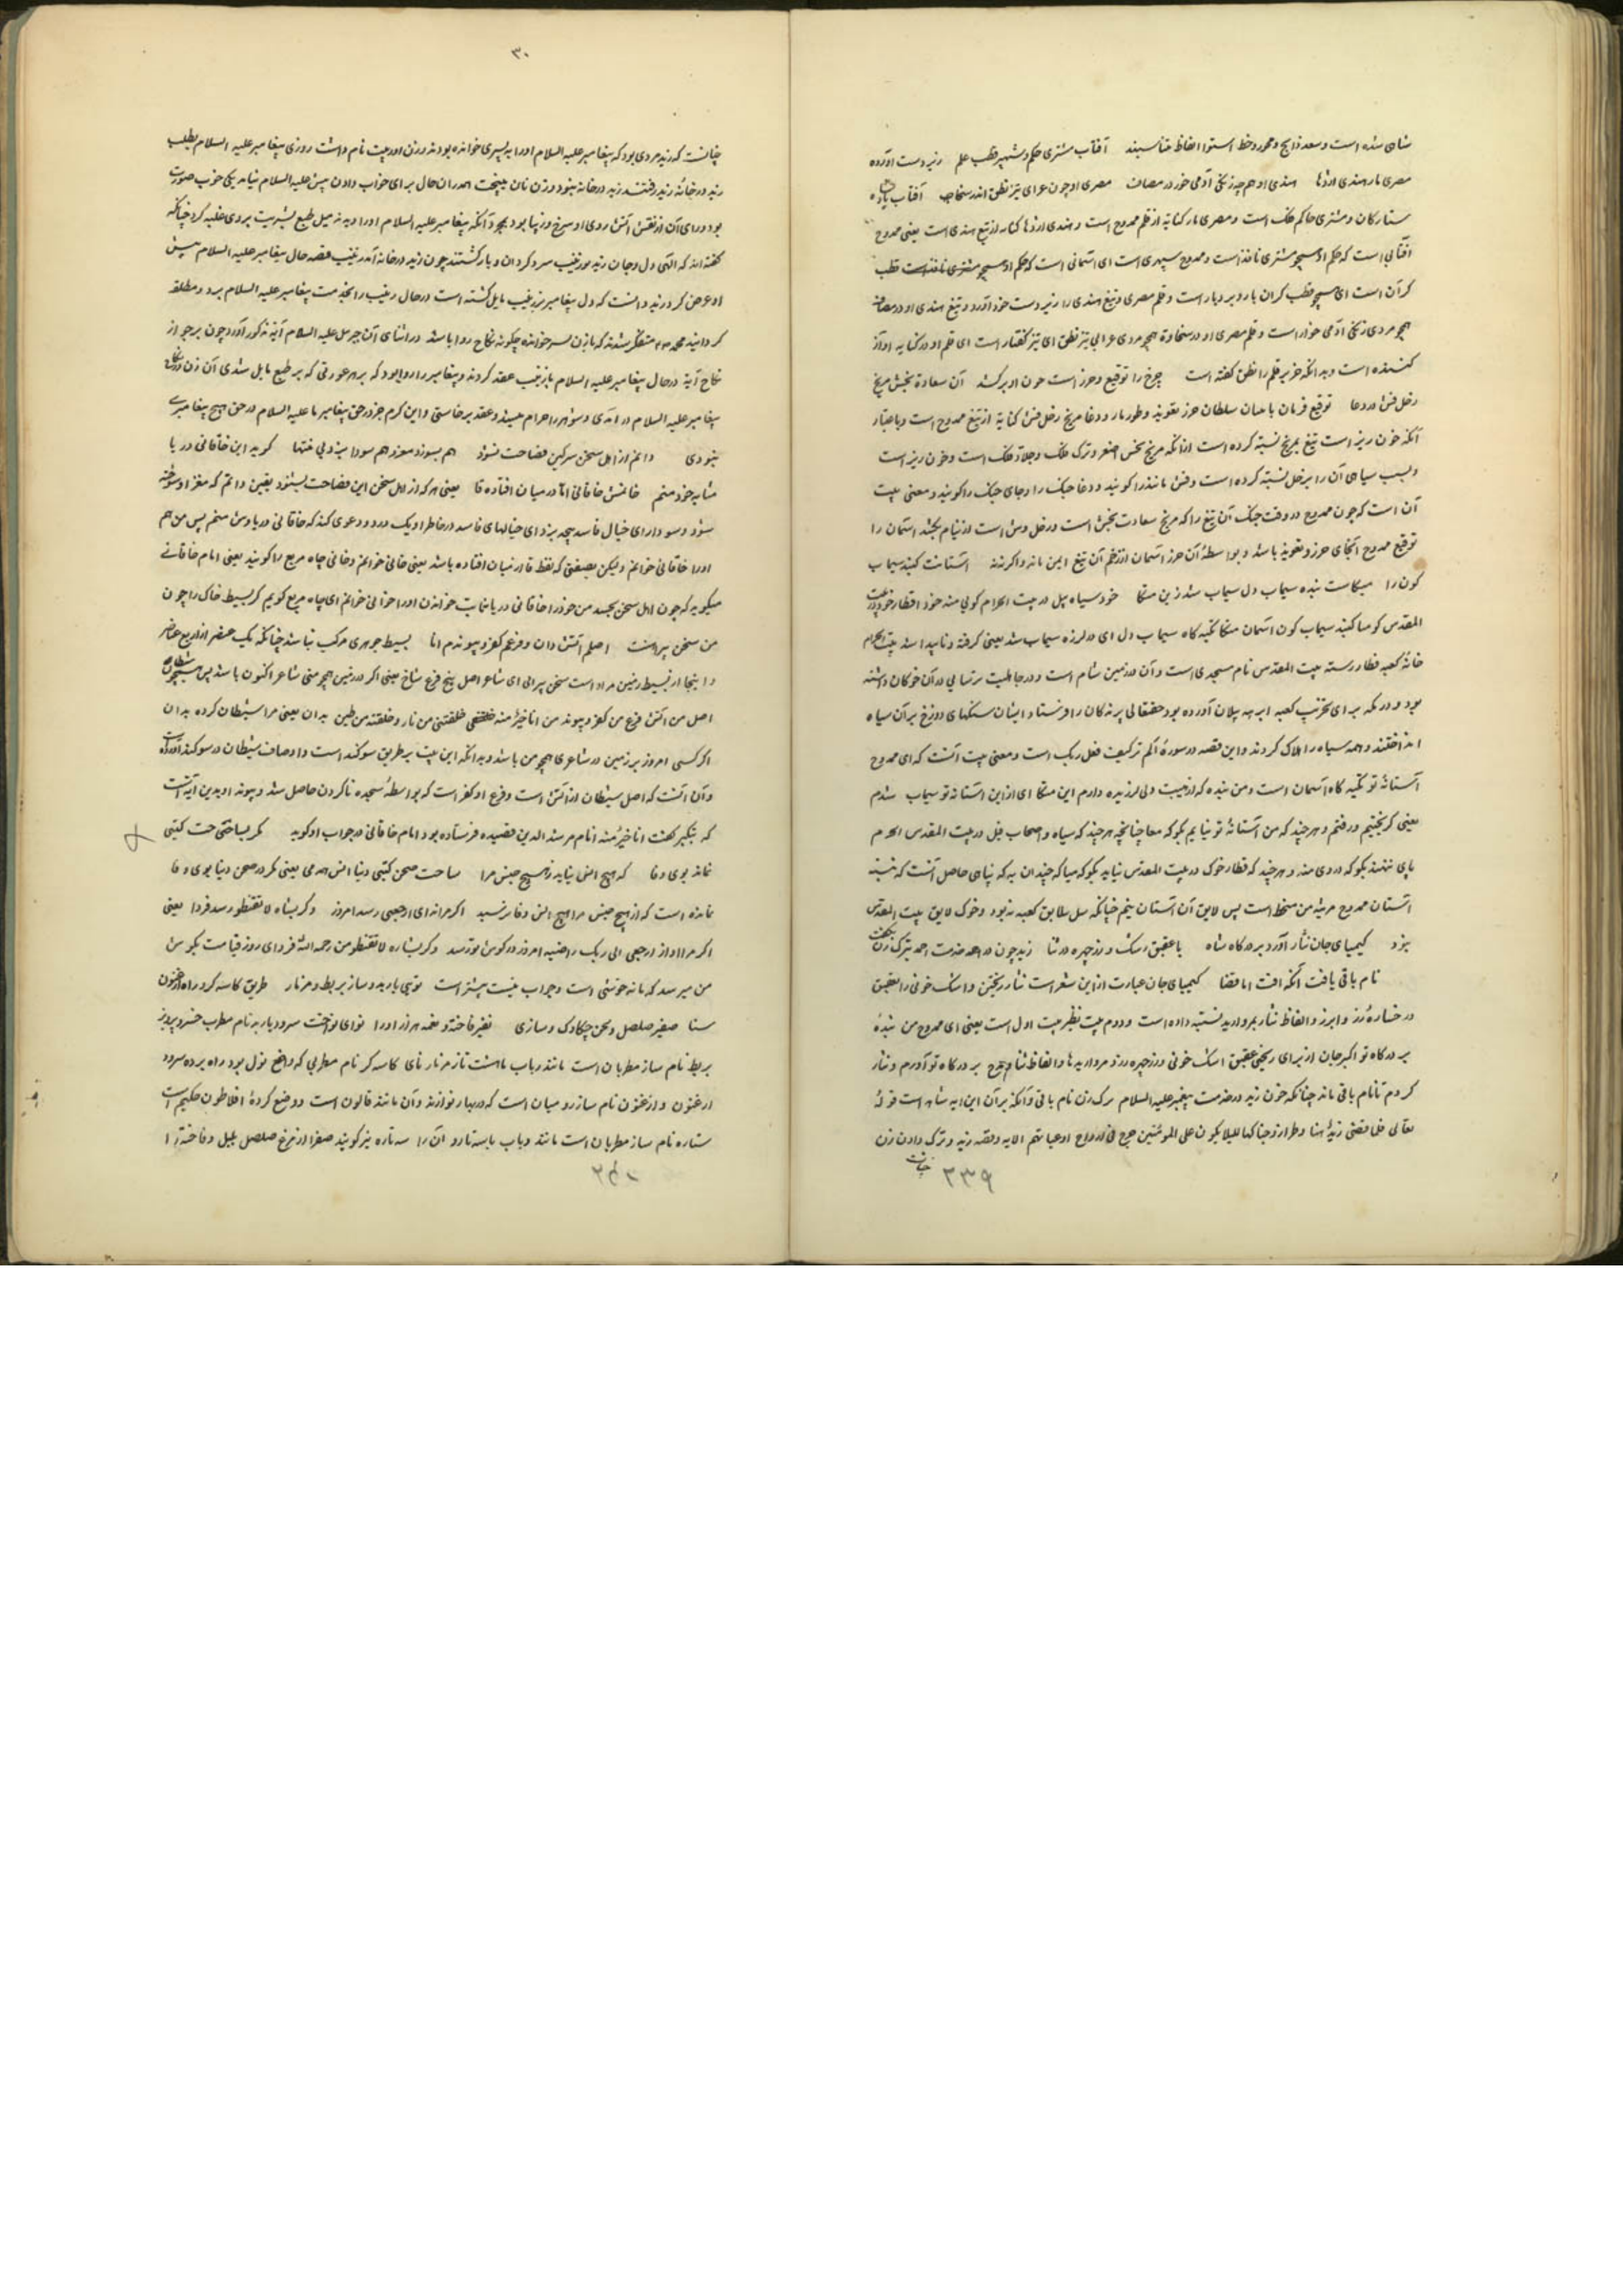 شاى شده است و سعد ذابح و محور و خط استوا الفاظ متناسبند آفتاب مشترى حكم و سپهر قطب علم زير دست آورده
مصرى مار هندى اژدها هندى او هم چه زنكى آدمى خور در مصاف مصرى او چون عرابى تيز نطق اندر سخا آفتاب
ستاركان و مشترى حاكم فلك است و مصرى مار كنايه از قلم ممدوح است و هندى اژدها كنايه از تيغ هندى است يعنى ممدوح
آفتابى است كه حكم او همچو مشترى نافذ است و ممدوح سپهرى است اى آسمانى است كه حكم او همچو مشترى نافذ است قطب
كر آن است اى همچو قطب كران بار و بردبار است و قلم مصرى و تيغ هندى را زير دست خود آورد و تيغ هندى او در مصاف
همچو مردى زنكى آدمى خوار است و قلم مصرى او در سخاوة همچو مردى عرابى تيز نطق اى تيز كفتار است اى قلم او در كتابه آواز
كننده است و بدانكه خزير قلم را نطق كفته است چرخ را توقيع و حرز است چون او بركشد آن سعادة بخش مريخ
زحل فش در دعا توقيع فرمان پادشاهان سلطان حرز تعويذ و طومار و دعا مريخ زحل فش كنايه از تيغ ممدوح است و باعتبار
آنكه خون ريز است تيغ بمريخ نسبة كرده است از انكه مريخ نحس اصغر و ترك فلك و جلاد فلك است و خون ريز است
و بسبب سياهى آن را بزحل نسبة كرده است و فش مانند را كويند و دغا جنك را و جاى جنك را كويند و معنى بيت
آن است كه چون ممدوح در وقت جنك آن تيغ را كه مريخ سعادت بخش است و زحل وش است از نيام بكشد آسمان را
توقيع ممدوح آنجاى حرز و تعويذ باشد و بواسطهٔ آن حرز آسمان از زخم آن تيغ ايمن ماند و اكر نه آستانت كنبد سيماب
كون را متكاست بنده سيماب دل سيماب شد زين متكا خود سياه پيل در بيت الحرام كوى منه خود قطار خوك در بيت
المقدس كو ميا كنبد سيماب كون آسمان متكا تكيه كاه سيماب دل اى در لرزه سيماب شد يعنى كرفته و ناپيدا شد بيت الحرام
خانهٔ كعبه قطار رسته بيت المقدس نام مسجدى است و آن در زمين شام است و در جاهليت ترسايى در آن خوكان داشته
بود و در مكه براى تخريب كعبه ابرهه پيلان آورده بود حقتعالى پرندكان را فرستاد ايشان سنكهاى دوزخ بر آن سياه
انداختند و همه سياه را هلاك كردند و اين قصه در سورهٔ الم تر كيف فعل ربك است و معنى بيت آنست كه اى ممدوح
آستانهٔ تو تكيه كاه آسمان است و من بنده كه از هيبت دلى لرزنده دارم اين متكا اى از اين آستانه تو سيماب شدم
يعنى كريختم و رفتم و هر چند كه من آستانهٔ تو نيايم بكو كه ميا چنانچه هر چند كه سياه و اصحاب فيل در بيت المقدس الحرم
پاى ننهند بكو كه در وى منه و هر چند كه قطار خوك در بيت المقدس نيايد بكو كه ميا كه چندان بد كه نيايى حاصل آنست كه بنسبة
آستان ممدوح مرتبهٔ من منحط است پس لايق آن آستان نيم چنانكه پيل لايق كعبه نبود و خوك لايق بيت المقدس
نبود كيمياى جان نثار آورد بر دركاه شاه با عقيق اشك و زر چهره در ثنا زيد چون در خدمت احمد بترك زن بكفت
نام باقى يافت آنكه آفت اما قضا كيمياى جان عبارت از اين شعر است نثار ريختن و اشك خونى را بعقيق
و رخسارهٔ زرد را بزر و الفاظ نثار بمرواريد نسبة داده است و دوم بيت نظير بيت اول است يعنى اى ممدوح من بندهٔ
بر دركاه تو اكسير جان از براى ريختن عقيق اشك خونى و زر چهره زرد و مرواريدها و الفاظ ثنا ممدوح بر دركاه تو آوردم و نثار
كردم تا نام باقى ماند چنانكه چون زيد در خدمت پيغمبر عليه السلام ترك زن نام باقى و آنكه بر آن اين آيه شاهد است قوله
تعالى فلما قضى زيد منها وطرا زوجناكها لكيلا يكون على المومنين حرج فى ازواج ادعيائهم الايه و قصه زيد و ترك دادن زن
چنانست
٣٣٩
٣٠
چنانست كه زيد مردى بود كه پيغامبر عليه السلام او را بپسرى خوانده بودند و زن او زينب نام داشت روزى پيغامبر عليه السلام بطلب
زيد در خانهٔ زيد رفتند زيد در خانه نبود و زن نان ميپخت همدران حال براى جواب دادن پيش عليه السلام بيامد يكى خوب صورت
بود و راى آن از تفش آتش روى او سرخ و زيبا بود بمجرد آنكه پيغامبر عليه السلام او را ديدند ميل طبع بشريت بر وى غلبه كرد چنانكه
كفته اند كه الهى دل و جان زيد بر زينب سرد كردان و باز كشتند چون زيد در خانه آمد زينب قصه حال پيغامبر عليه السلام پيش
او عرض كرد زيد دانست كه دل پيغامبر بزينب مايل كشته است در حال زينب را بخدمت پيغامبر عليه السلام برد و مطلقه
كردانيد محمد متفكر شدند كه با زن پسر خوانده چكونه نكاح روا باشد در اثناى آن جبرئيل عليه السلام آيهٔ مذكور آورد چون بر جواز
نكاح آيهٔ در حال پيغامبر عليه السلام با زينب عقد كردند و پيغامبر را روا بود كه بر هر عورتى كه بر طبع مايل شدى آن زن در نكاح
پيغامبر عليه السلام در آمدى و شوهر را حرام ميشد و عقد بر خاستى و اين كرم جز در حق پيغامبر ما عليه السلام در حق هيچ پيغامبرى
نبودى دانم از اهل سخن هر كين فصاحت بشنود هم بسوزد مغز هم سودا پزد بى منتها كويد اين خاقانى دريا
مثابه خود منم خوانمش خاقانى اما در ميان افتاده قا يعنى هر كه از اهل سخن اين فصاحت بشنود يقين دانم كه مغز او سوخته
شود و سودا راى خيال فاسد پچد پزد اى خيالهاى فاسد در خاطر او يك در رود و دعوى كند كه خاقانى دريا وش منم پس من هم
او را خاقانى خوانم وليكن بصفتى كه نقط قا از ميان افتاده باشد يعنى خانى خوانم و خانى چاه مربع را كويند يعنى امام خاقانى
ميكويد كه چون اهل سخن بحسد من خود را خاقانى دريا مثابت خوانند من او را خوانى خوانم اى چاه مربع كويم كر بسيط خاك را چون
من سخن پيراهست اصلم آتش دان و فرعم كفر و پيوندم انا بسيط جوهرى مركب نباشد چنانكه يك عنصر از اربع عناصر
و اينجا از بسيط زمين مراد است سخن پيراى اى شاعر اصل بيخ فرع شاخ يعنى اكر در زمين همچو منى شاعر اكنون باشد پس
اصل من آتش فرع من كفر و پيوند من انا خير منه خلقتنى من نار و خلقته من طين بدان يعنى مرا شيطان كرده بدان
اكر كسى امروز بر زمين در شاعرى همچو من باشد و بدانكه اين بيت بر طريق سوكند است و اوصاف شيطان در سوكند آورده
و آن آنست كه اصل شيطان از آتش است و فرع او كفر است كه بواسطهٔ سجده ناكردن حاصل شد و پيوند او بدين آيهٔ است
كه بتكبر كفت انا خير منه انام مرشد الدين قصيده فرستاده بود امام خاقانى در جواب او كويد مكر بساحتى حت كيتى
نماند بوى وفا كه هيچ انس نيايد ز هيچ جنس مرا ساحت صحن كيتى دنيا انس همدمى يعنى مكر در صحن دنيا بوى وفا
نمانده است كه از هيچ جنس مرا هيچ انس وفا نرسيد اكر مرا نداى ارجعى رسد امروز وكر بشاره لا تقنطو رسد فردا يعنى
اكر مرا آواز ارجعى الى ربك راضيه امروز در كوش موتر سد وكر بشاره لا تقنطو من رحمه الله فرداى روز قيامت بكوش
من ميرسد كه مانده خوشى است و جواب بيت پيشتر است توئى باربد و ساز بربط و مزمار طريق كاسه كر و راه ارغنون
سنا صفير صلصل و لحن چكاوك و سازى نفير فاخته و نغمه هزار آوا نواى نواخت سرود باربد نام مطرب خسرو پرويز
بربط نام ساز مطربان است مانند رباب ماهست تاز مزمار ناى كاسه كر نام مطربى كه واضع نول بود راه پرده سرود
ارغنون و ارغنون نام ساز روميان است كه در بهار نوازند و آن مانند قانون است و وضع كردهٔ افلاطون حكيم است
ستاره نام ساز مطربان است مانند رباب باسه تار و آن را سه تاره نيز كويند صفير آواز مرغ صلصل بلبل و فاخته را
٣٤٠